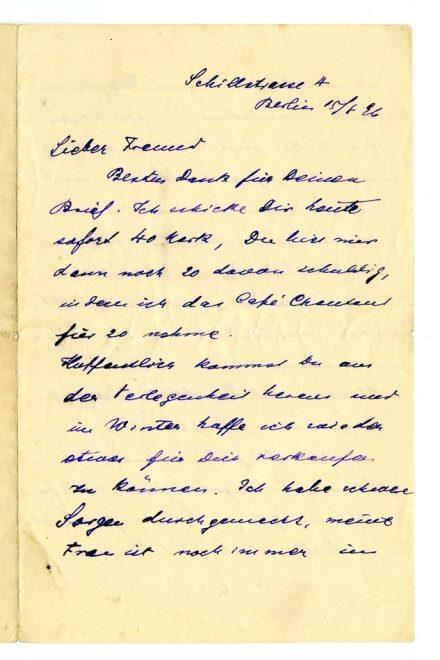 Schillstrasse 4
Berlin 15/8 26
Lieber Freund
Besten Dank für Deinen
Brief. Ich schicke Dir heute
sofort 40 Mark, Du bist mir
dann noch 20 davon schuldig,
indem ich das Café Chantant
für 20 nehme.
Hoffentlich kommst Du aus
der Verlegenheit heraus und
im Winter hoffe ich wieder
etwas für Dich verkaufen
zu können. Ich habe schwere
Sorgen durchgemacht, meine
Frau ist noch immer in